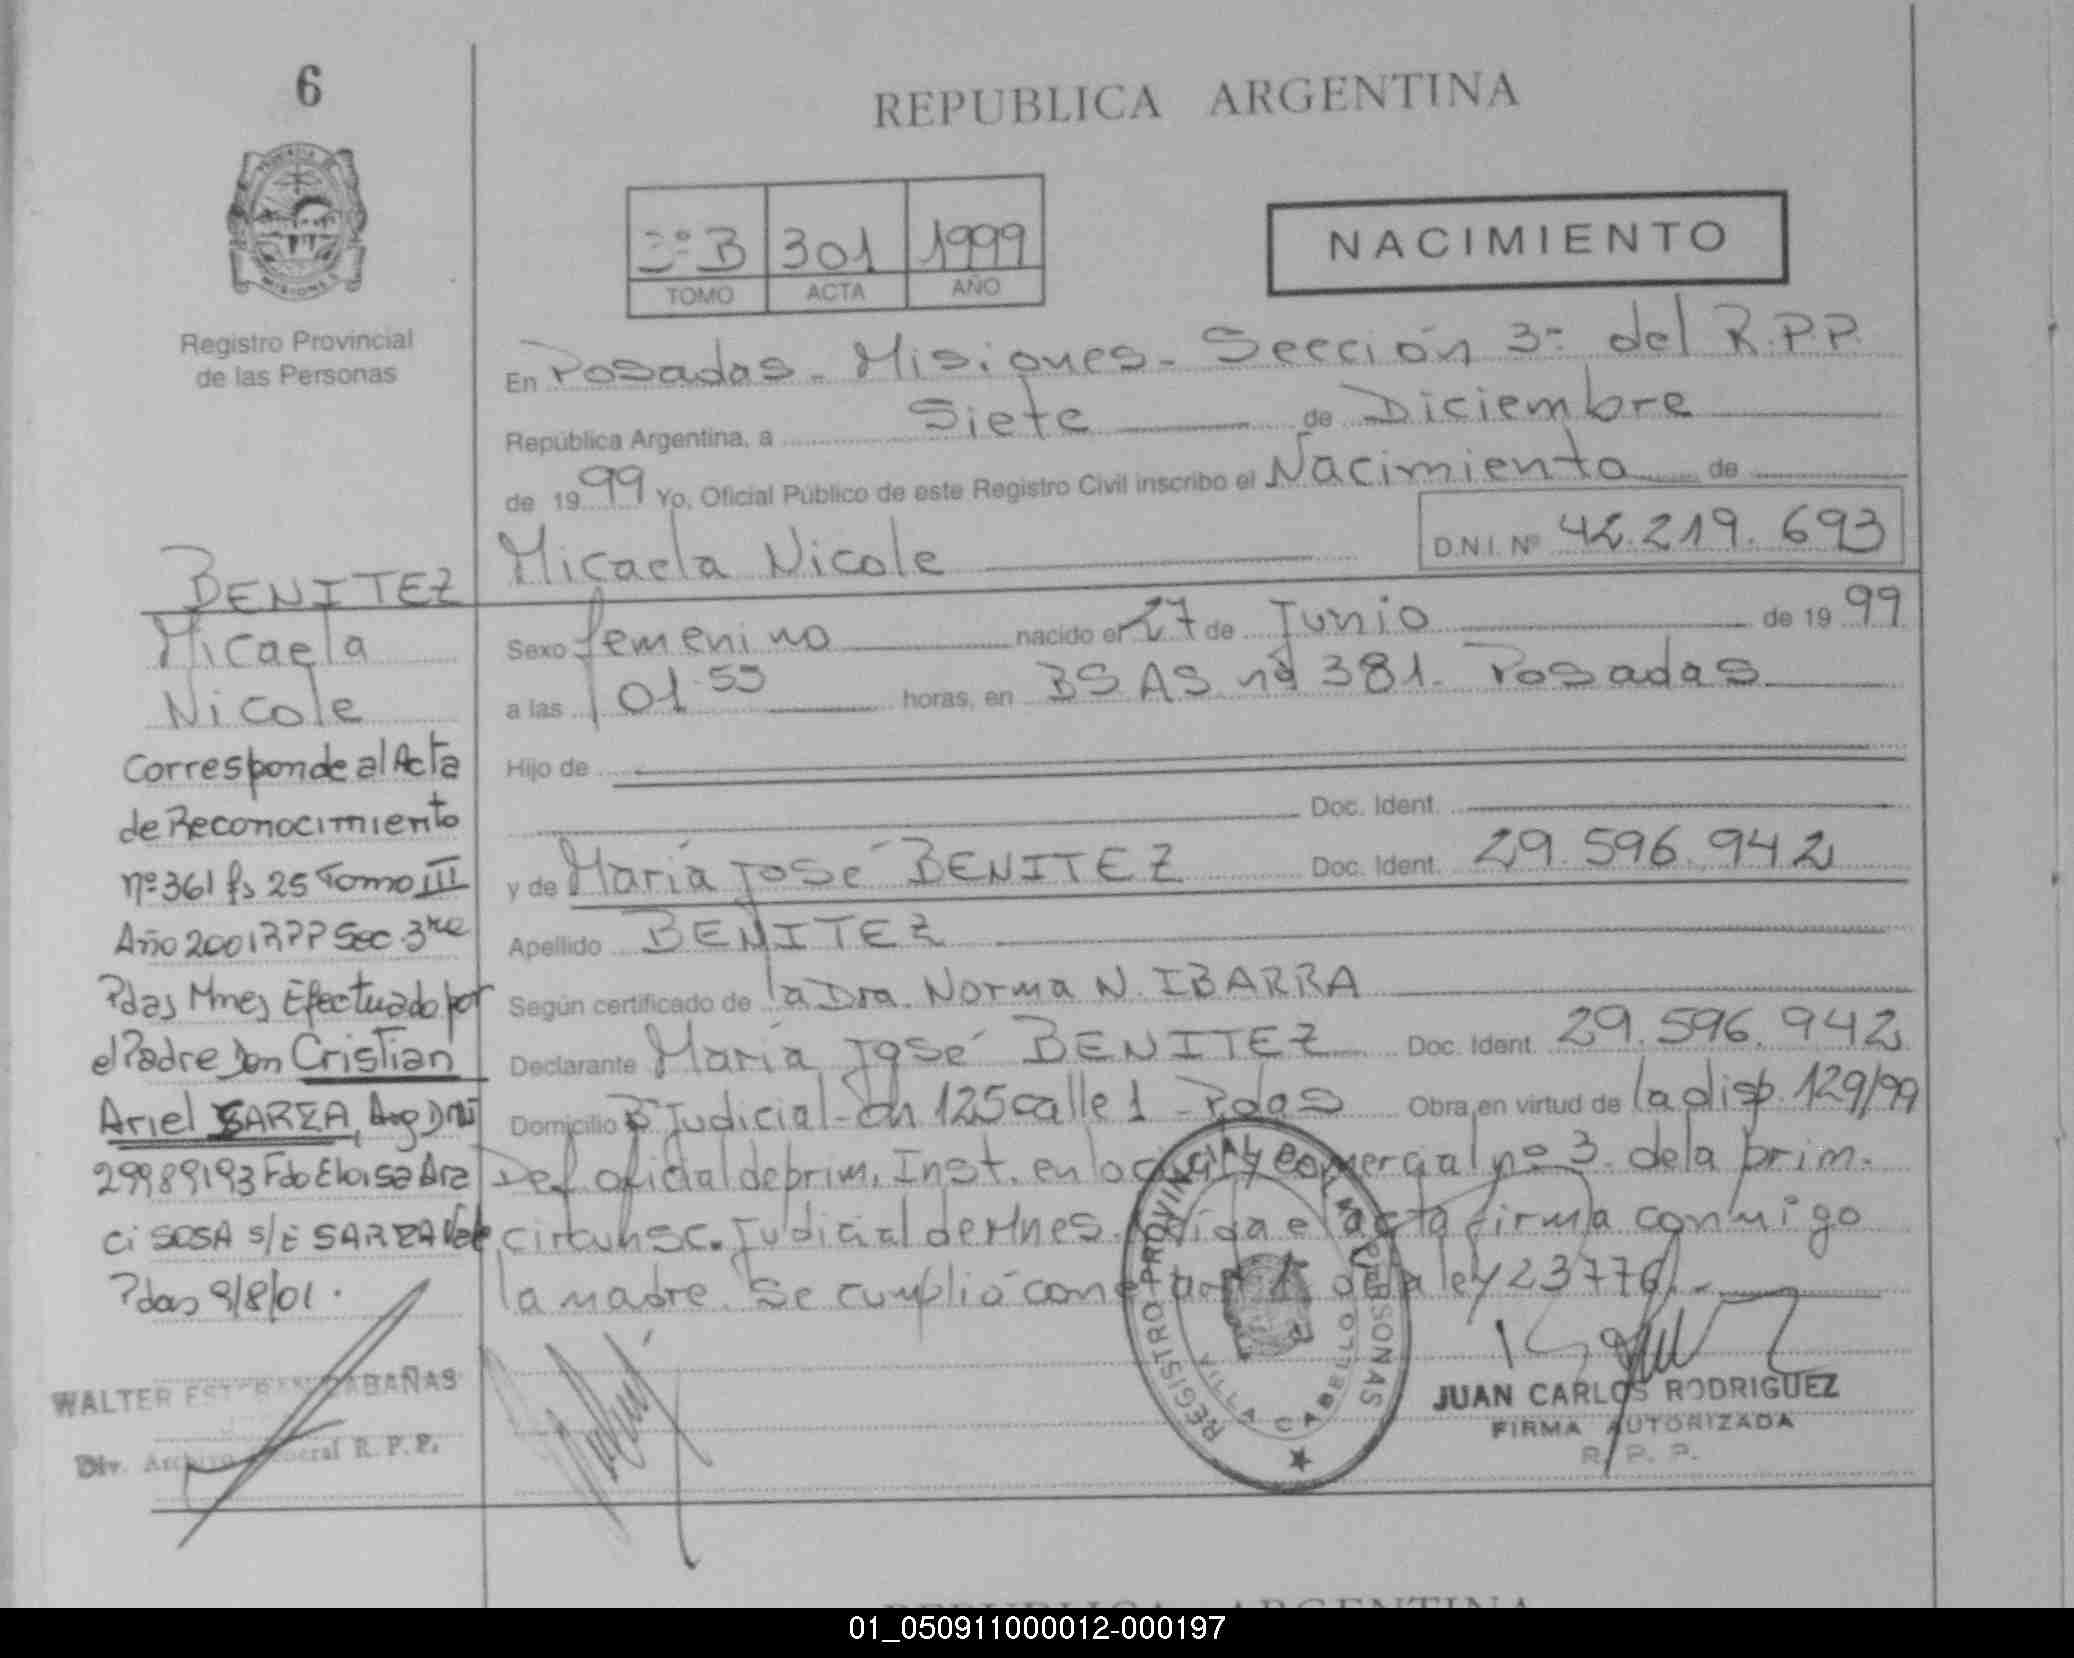 6
REPUBLICA ARGENTINA
3º B 301 1999
TOMO ACTA AÑO
NACIMIENTO
Registro Provincial
de las Personas
En Posadas - Misiones - Sección 3ª del R.P.P.
República Argentina, a Siete de Diciembre
de 1999 Yo, Oficial Público de este Registro Civil inscribo el Nacimiento de
Micaela Nicole D.N.I. Nº 42.219.693
Sexo femenino nacido el 27 de Junio de 1999
a las 01.55 horas, en BS AS nº 381. Posadas
Hijo de
Doc. Ident.
y de María José BENITEZ Doc. Ident. 29.596.942
Apellido BENITEZ
Según certificado de la Dra. Norma N. IBARRA
Declarante María José BENITEZ Doc. Ident. 29.596.942
Domicilio Bº Judicial - ch 125 calle 1 - Pdas Obra en virtud de la disp. 129/99
Def oficial de prim. Inst. en lo civil y comercial nº 3 de la prim.
circunsc. Judicial de Mnes. Leída el acta firma conmigo
la madre. Se cumplió con el art 1 de la ley 23776.-
BENITEZ
Micaela
Nicole
Corresponde al Acta
de Reconocimiento
nº 361 fs 25 Tomo III
Año 2001 RPP Sec. 3ra
Pdas Mnes Efectuado por
el Padre Don Cristian
Ariel SARZA, Arg DNI
29989193 Fdo Eloisa Ara
ci SOSA s/E SARZA Vale
Pdas 9/8/01.
WALTER ESTEBAN CABAÑAS
Div. Archivo General R. P. P.
REGISTRO PROVINCIAL DE LAS PERSONAS
VILLA CABELLO
JUAN CARLOS RODRIGUEZ
FIRMA AUTORIZADA
R. P. P.
REPUBLICA ARGENTINA
01_050911000012-000197